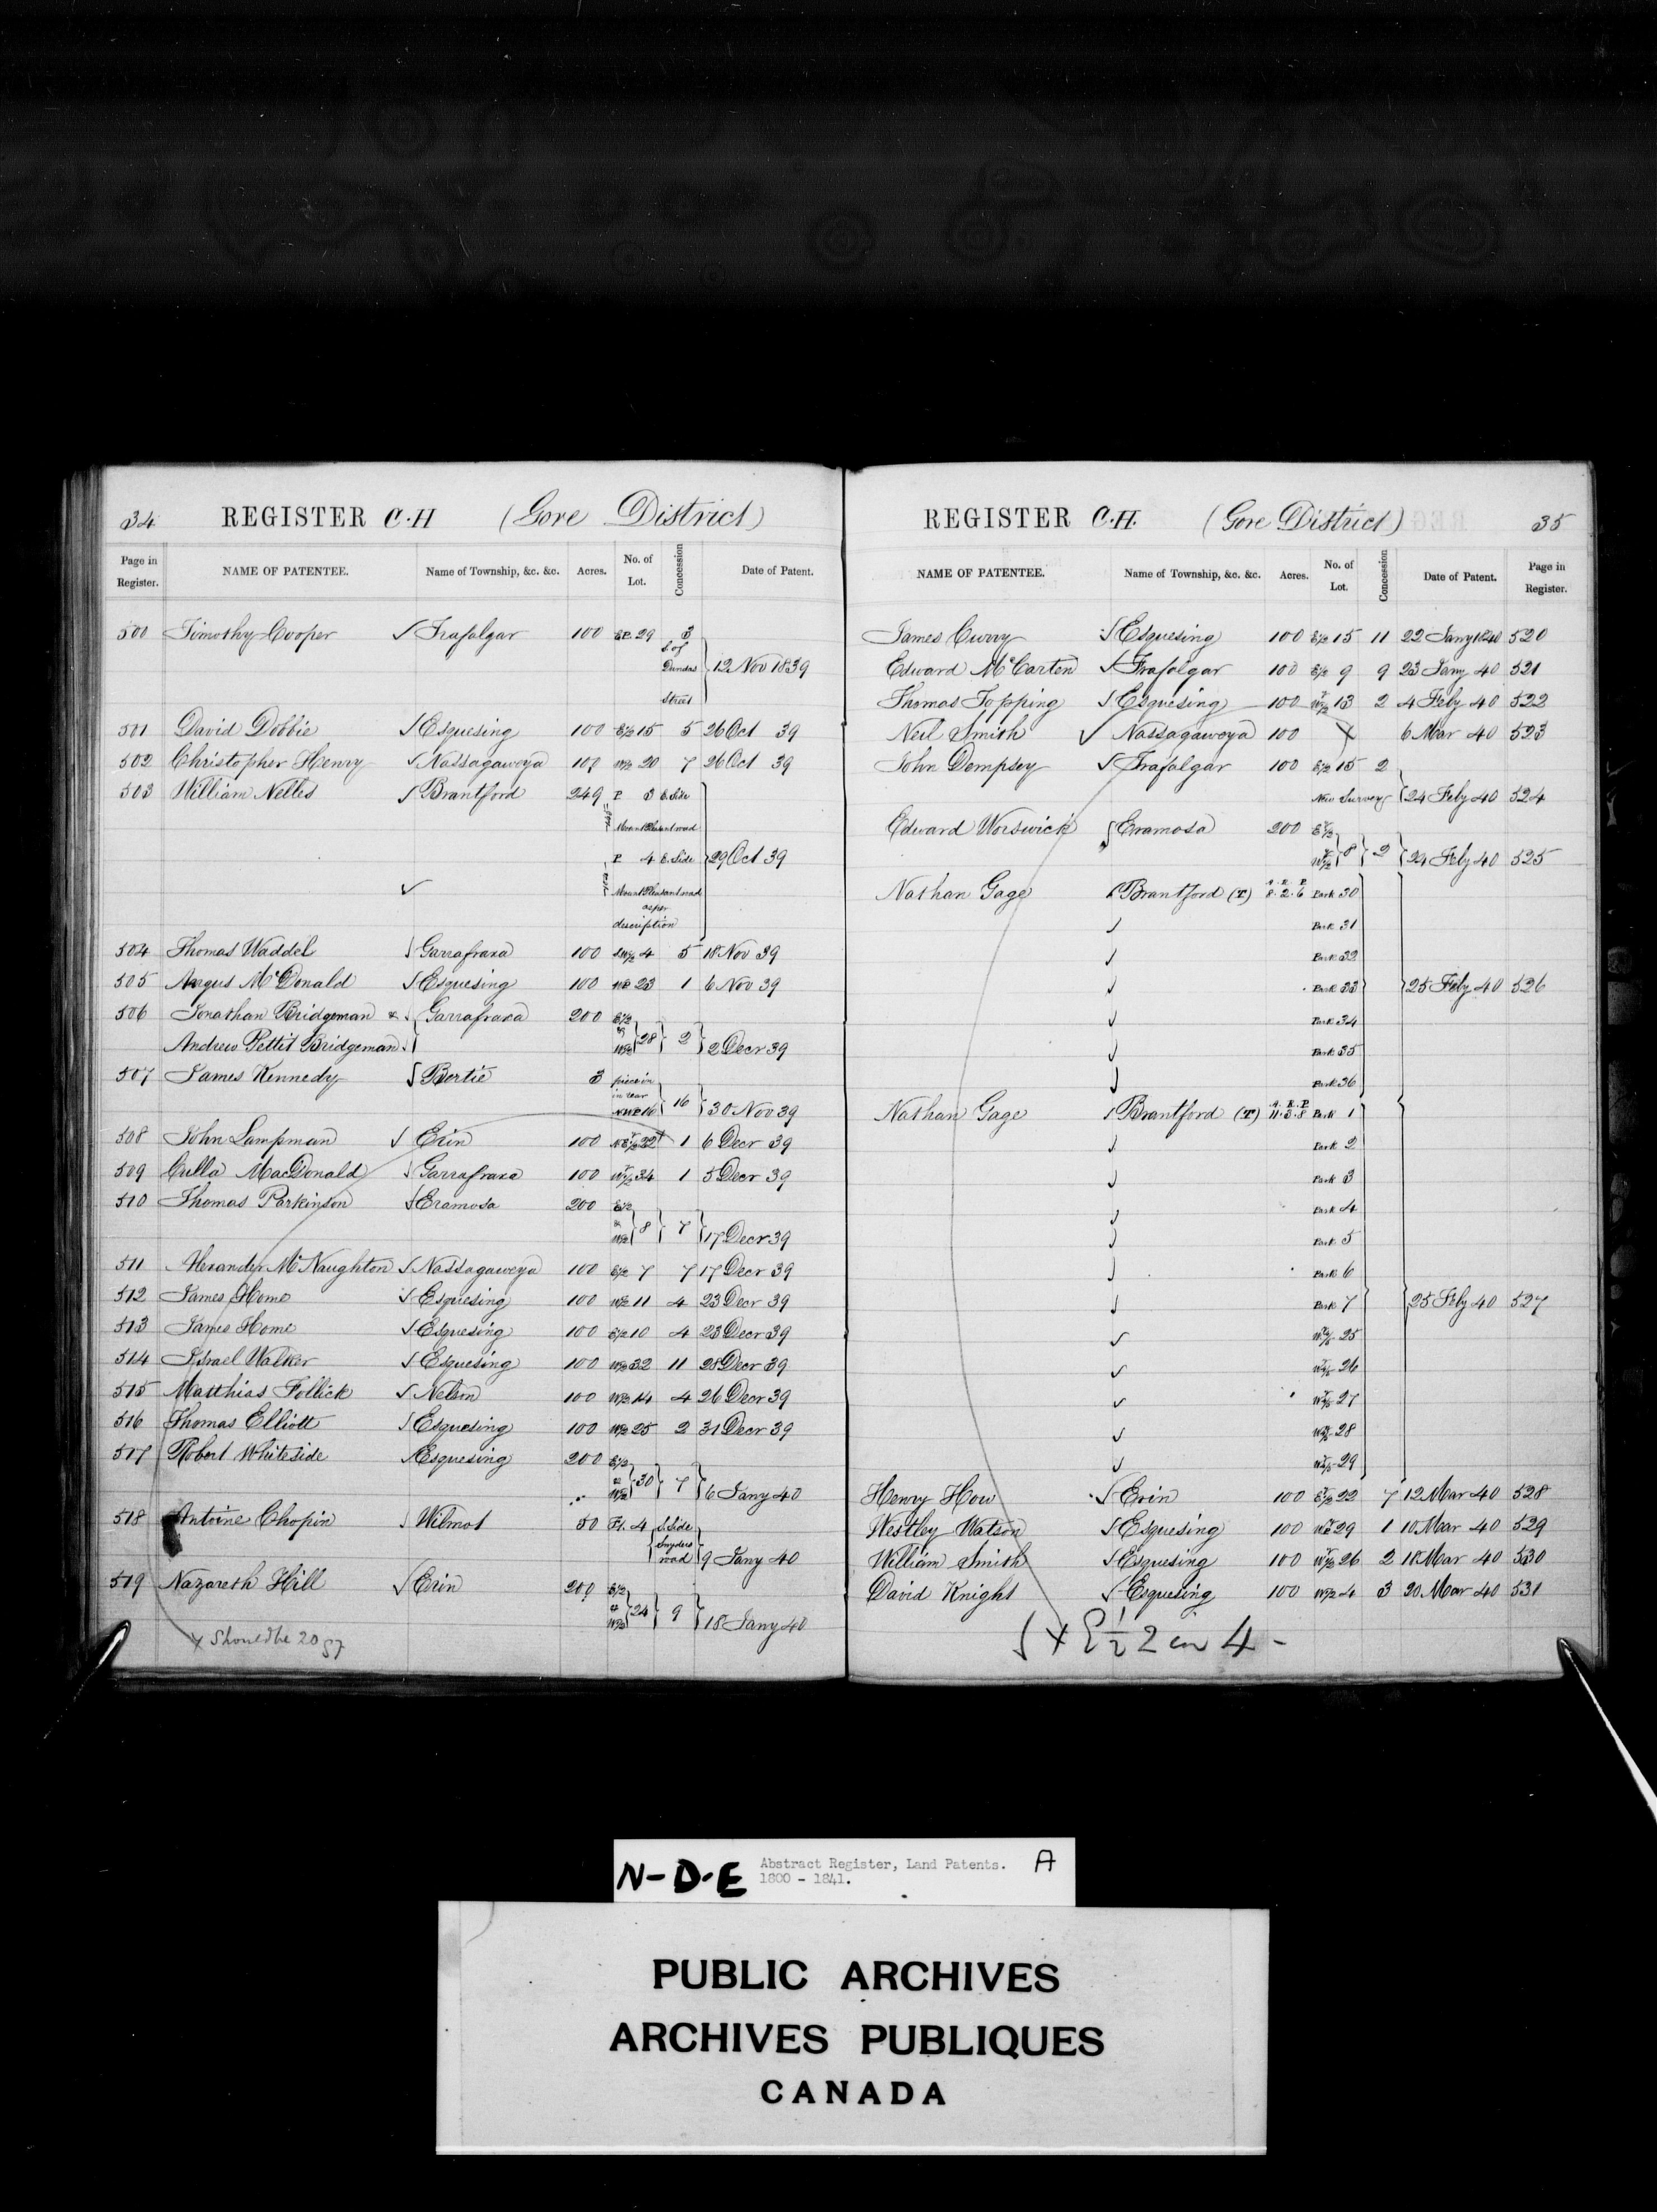 34 REGISTER C.H (Gore District)
Page in Register. NAME OF PATENTEE. Name of Township, &c. &c. Acres. No. of Lot. Concession Date of Patent.
500 Timothy Cooper Trafalgar 100 29 3
S. of
Dundas 12 Nov 1839
Street
501 David Dobbie Esquesing 100 E½ 15 5 26 Oct 39
502 Christopher Henry Nassagaweya 100 W½ 20 7 26 Oct 39
503 William Nelles Brantford 249 P 3 E. Side
Mount Pleasant road
P 4 E. Side 29 Oct 39
Mount Pleasant road
as per
description
504 Thomas Waddel Garrafraxa 100 4 5 18 Nov 39
505 Angus McDonald Esquesing 100 23 1 6 Nov 39
506 Jonathan Bridgeman & Garrafraxa 200 E½
Andrew Pettit Bridgeman & W½ 28 2 2 Decr 39
507 James Kennedy Bertie 3 piece in
in rear
16 16 30 Nov 39
508 John Lampman Erin 100 22 1 6 Decr 39
509 Culla MacDonald Garrafraxa 100 W½ 34 1 5 Decr 39
510 Thomas Parkinson Eramosa 200 E½
& W½ 8 7 17 Decr 39
511 Alexander McNaughton Nassagaweya 100 E½ 7 7 17 Decr 39
512 James Home Esquesing 100 W½ 11 4 23 Decr 39
513 James Home Esquesing 100 E½ 10 4 23 Decr 39
514 Israel Walker Esquesing 100 W½ 32 11 28 Decr 39
515 Matthias Follick Nelson 100 W½ 14 4 26 Decr 39
516 Thomas Elliott Esquesing 100 W½ 25 2 31 Decr 39
517 Robert Whiteside Esquesing 200 E½
& W½ 30 7 6 Jany 40
518 Antoine Chopin Wilmot 50 Pt. 4 S. Side
Snyders
road 9 Jany 40
519 Nazareth Hill Erin 200 E½
& W½ 24 9 18 Jany 40
x Should be 20
REGISTER C.H. (Gore District) 35
NAME OF PATENTEE. Name of Township, &c. &c. Acres. No. of Lot. Concession Date of Patent. Page in Register.
James Curry Esquesing 100 E½ 15 11 22 Jany 1840 520
Edward McCarten Trafalgar 100 E½ 9 9 23 Jany 40 521
Thomas Topping Esquesing 100 W½ 13 2 4 Feby 40 522
Neil Smith Nassagaweya 100 X 6 Mar 40 523
John Dempsey Trafalgar 100 E½ 15 2
New Survey 24 Feby 40 524
Edward Worswick Eramosa 200 E½
W½ 8 2 24 Feby 40 525
Nathan Gage Brantford (T) A. R. P. 8.2.6 Park 30
Park 31
Park 32
Park 33 25 Feby 40 526
Park 34
Park 35
Park 36
Nathan Gage Brantford (T) A. R. P. 11.3.8 Park 1
Park 2
Park 3
Park 4
Park 5
Park 6
Park 7 25 Feby 40 527
25
26
27
28
29
Henry How Erin 100 E½ 22 7 12 Mar 40 528
Westley Watson Esquesing 100 29 1 10 Mar 40 529
William Smith Esquesing 100 W½ 26 2 18 Mar 40 530
David Knight Esquesing 100 W½ 4 3 20 Mar 40 531
X E½ 2 in 4 -
N-D-E Abstract Register, Land Patents. A
1800 - 1841.
PUBLIC ARCHIVES
ARCHIVES PUBLIQUES
CANADA